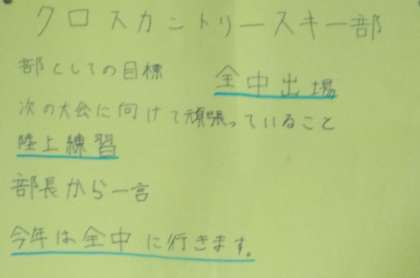 クロスカントリースキー部
部としての目標 全中出場
次の大会に向けて頑張っていること
陸上練習
部長から一言
今年は全中に行きます。